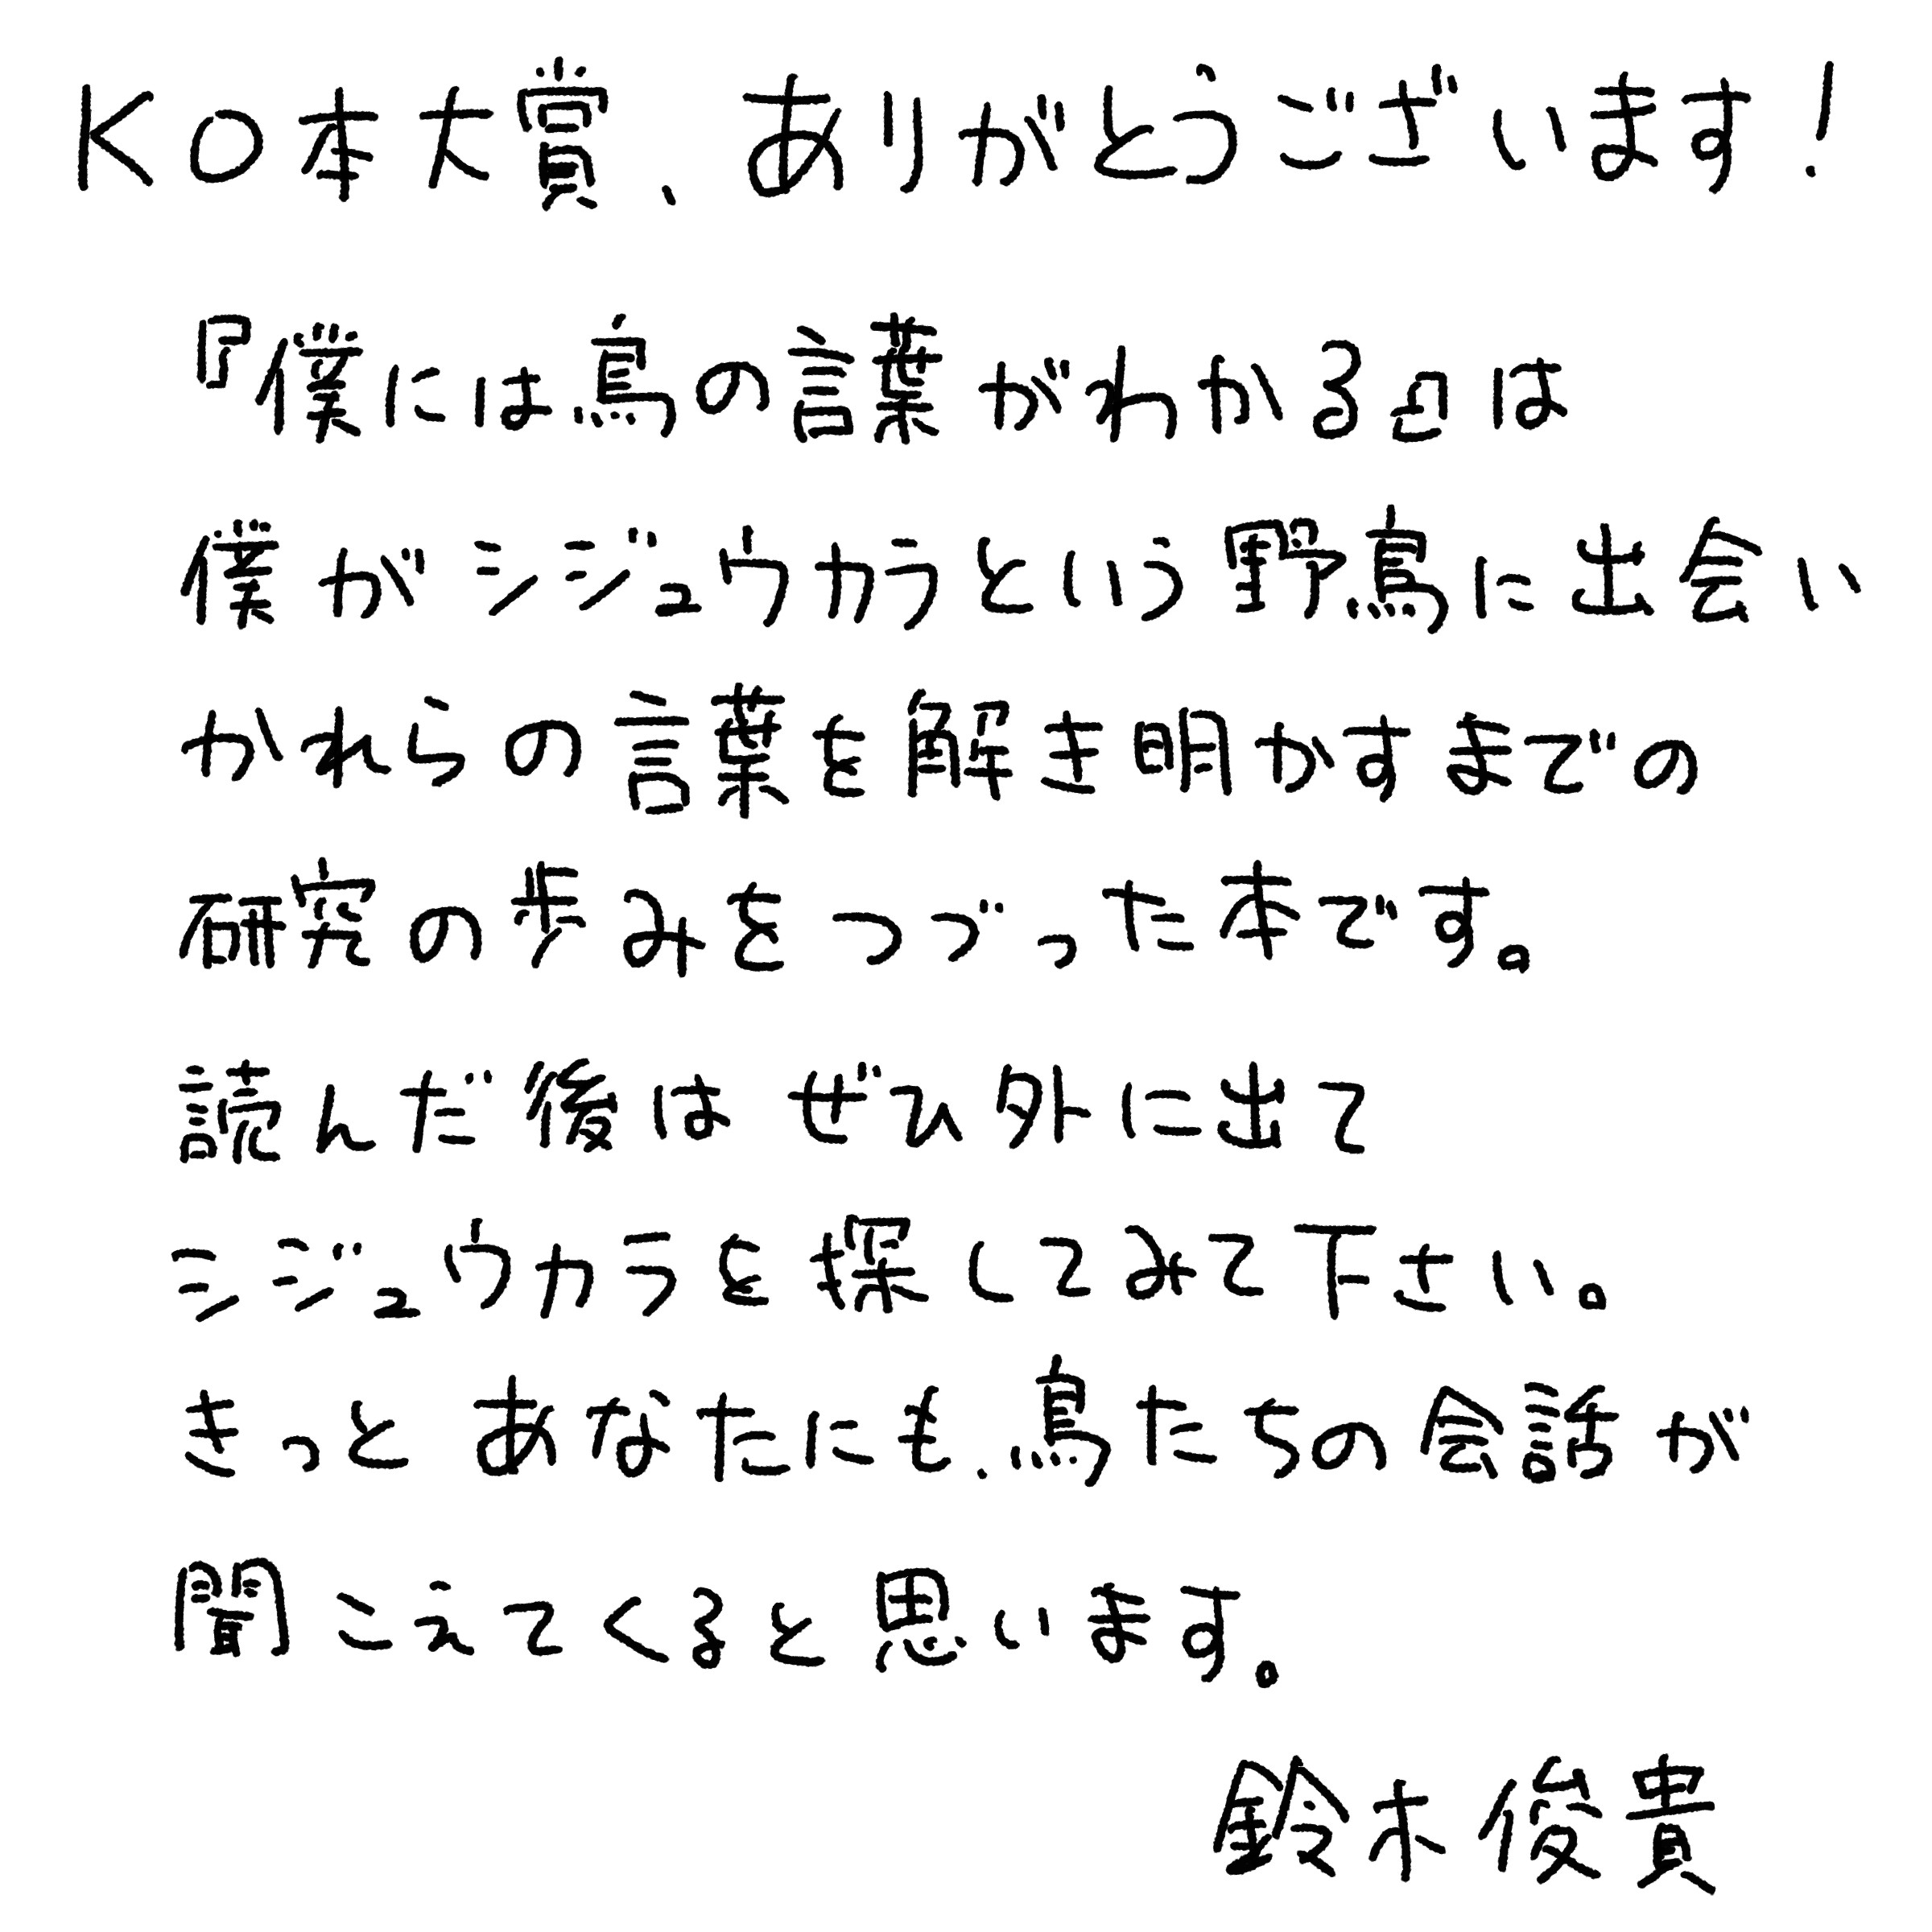 KO本大賞、ありがとうございます!
『僕には鳥の言葉がわかる』は
僕がシジュウカラという野鳥に出会い
かれらの言葉を解き明かすまでの
研究の歩みをつづった本です。
読んだ後はぜひ外に出て
シジュウカラを探してみて下さい。
きっとあなたにも、鳥たちの会話が
聞こえてくると思います。
鈴木俊貴